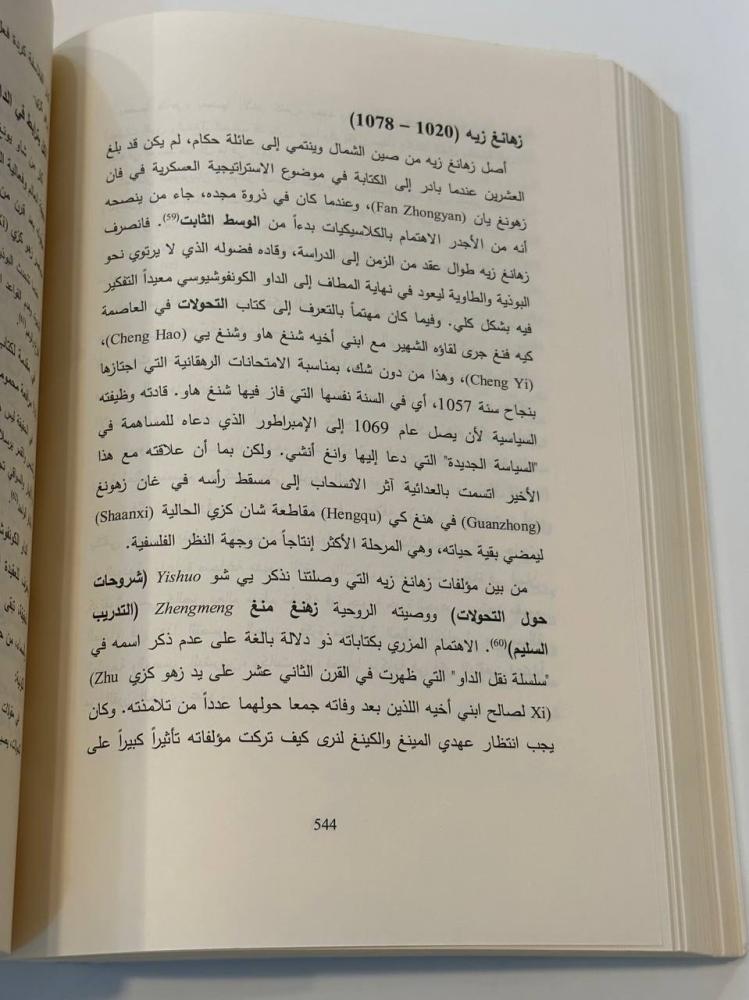 زهانغ زيه (1020 – 1078)
أصل زهانغ زيه من صين الشمال وينتمي إلى عائلة حكام، لم يكن قد بلغ
العشرين عندما بادر إلى الكتابة في موضوع الاستراتيجية العسكرية في فان
زهونغ يان (Fan Zhongyan)، وعندما كان في ذروة مجده، جاء من ينصحه
أنه من الأجدر الاهتمام بالكلاسيكيات بدءاً من الوسط الثابت(59). فانصرف
زهانغ زيه طوال عقد من الزمن إلى الدراسة، وقاده فضوله الذي لا يرتوي نحو
البوذية والطاوية ليعود في نهاية المطاف إلى الداو الكونفوشيوسي معيداً التفكير
فيه بشكل كلي. وفيما كان مهتماً بالتعرف إلى كتاب التحولات في العاصمة
كيه فنغ جرى لقاؤه الشهير مع ابني أخيه شنغ هاو وشنغ يي (Cheng Hao)،
(Cheng Yi)، وهذا من دون شك، بمناسبة الامتحانات الرهقانية التي اجتازها
بنجاح سنة 1057، أي في السنة نفسها التي فاز فيها شنغ هاو. قادته وظيفته
السياسية لأن يصل عام 1069 إلى الإمبراطور الذي دعاه للمساهمة في
"السياسة الجديدة" التي دعا إليها وانغ أنشي. ولكن بما أن علاقته مع هذا
الأخير اتسمت بالعدائية آثر الانسحاب إلى مسقط رأسه في غان زهونغ
(Guanzhong) في هنغ كي (Hengqu) مقاطعة شان كزي الحالية (Shaanxi)
ليمضي بقية حياته، وهي المرحلة الأكثر إنتاجاً من وجهة النظر الفلسفية.
من بين مؤلفات زهانغ زيه التي وصلتنا نذكر يي شو Yishuo (شروحات
حول التحولات) ووصيته الروحية زهنغ منغ Zhengmeng (التدريب
السليم)(60). الاهتمام المزري بكتاباته ذو دلالة بالغة على عدم ذكر اسمه في
"سلسلة نقل الداو" التي ظهرت في القرن الثاني عشر على يد زهو كزي (Zhu
Xi) لصالح ابني أخيه اللذين بعد وفاته جمعا حولهما عدداً من تلامذته. وكان
يجب انتظار عهدي المينغ والكينغ لنرى كيف تركت مؤلفاته تأثيراً كبيراً على
544